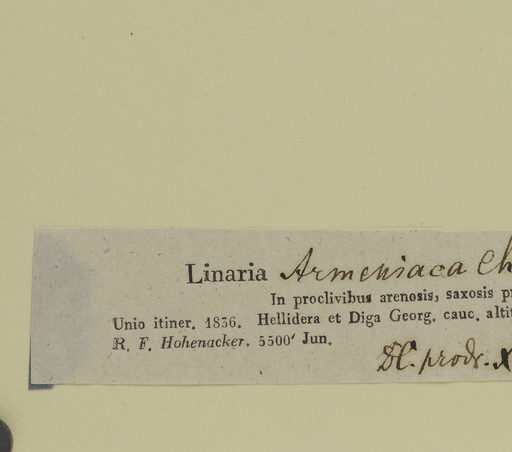 Linaria Armeniaca Ch
In proclivibus arenosis, saxosis pr
Unio itiner. 1836. Hellidera et Diga Georg. cauc. altit
R. F. Hohenacker. 5500' Jun.
DC. prodr. X